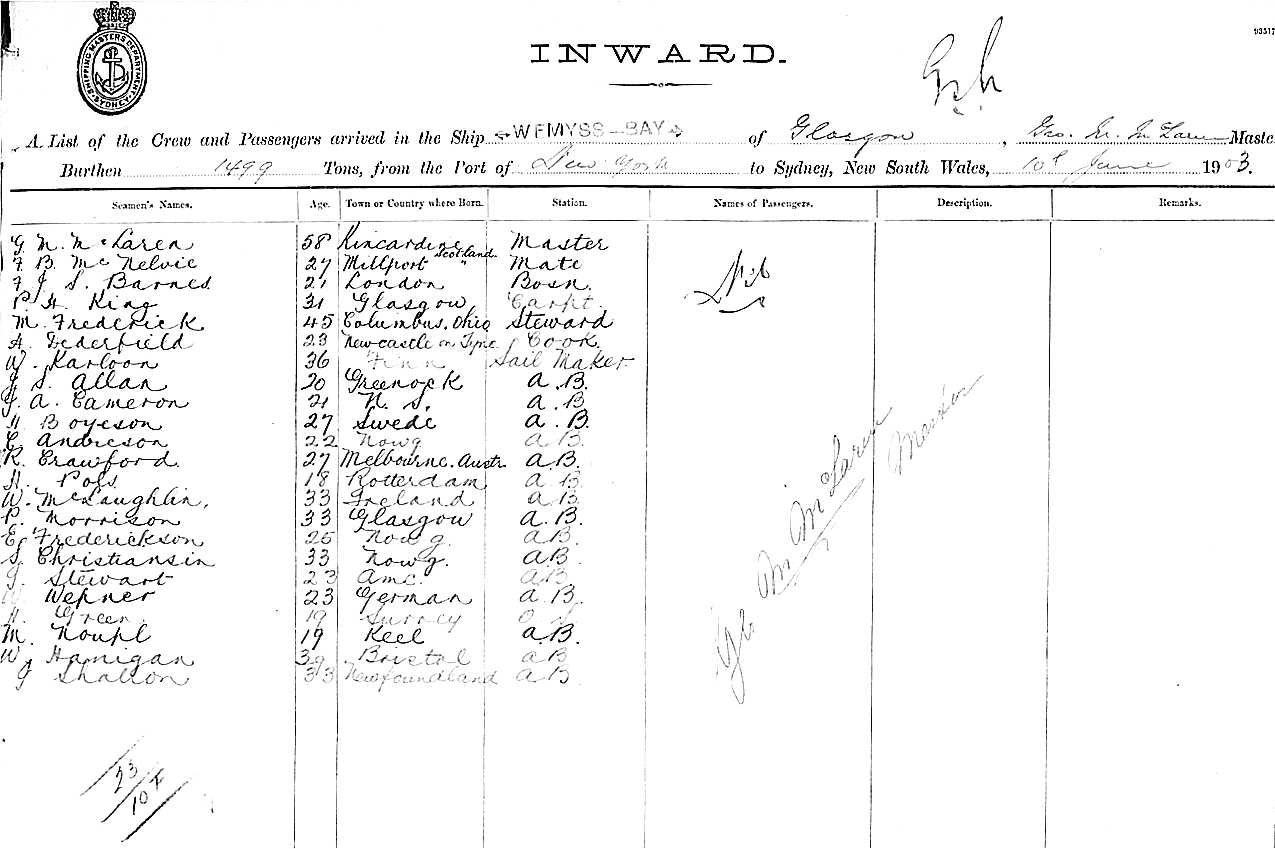 93517
SHIPPING MASTERS DEPARTMENT
SYDNEY
INWARD.
A List of the Crew and Passengers arrived in the Ship WEMYSS-BAY of Glasgow, Geo. M. McLaren Maste
Burthen 1499 Tons, from the Port of New York to Sydney, New South Wales, 10th June 1903.
Seamen's Names. Age. Town or Country where Born. Station. Names of Passengers. Description. Remarks.
G. M. McLaren 58 Kincardine Scotland Master
F. B. McKelvie 27 Millport " Mate
F. J. S. Barnes 21 London Bosn. Nil
P. H. King 31 Glasgow Carpt.
M. Frederick 45 Columbus. Ohio Steward
A. Dederfield 23 Newcastle on Tyne Cook
W. Karloon 36 Finn Sail Maker
J. S. Allan 20 Greenock A.B.
J. A. Cameron 21 N. S. A.B
H Boyeson 27 Swede A.B.
C. Andreson 22 Nowg AB
R. Crawford 27 Melbourne. Austr A.B.
H. Pols 18 Rotterdam A B
W. McLaughlin. 33 Ireland A B
P. Morrison 33 Glasgow A.B.
E. Frederickson 25 Nowg. AB
S. Christiansin 33 Nowg. AB
J. Stewart 23 Amc. AB
Wepner 23 German A B
H. Green 19 Surrey O S
M. Noupl 19 Keel A.B.
W. Hanigan 39 Bristol AB
J Shallon 33 Newfoundland AB
Geo M. McLaren
Master
23/104